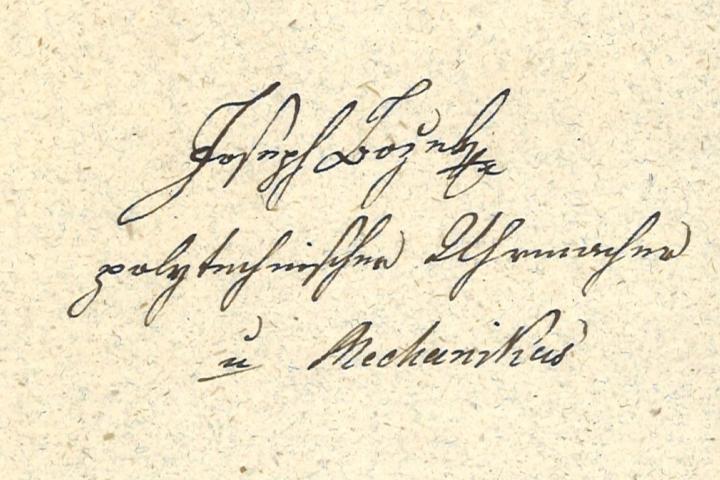 Joseph Božek
polytechnischer Uhrmacher
u Mechanikus